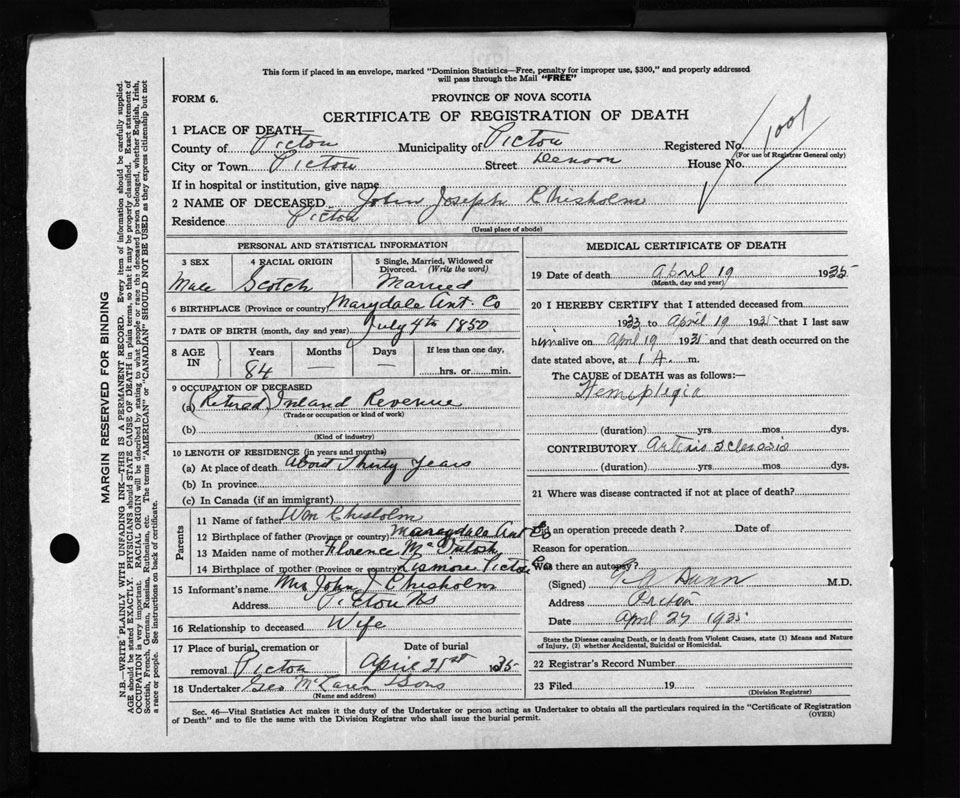 This form if placed in an envelope, marked "Dominion Statistics—Free, penalty for improper use, $300," and properly addressed
will pass through the Mail "FREE"
FORM 6.
PROVINCE OF NOVA SCOTIA
CERTIFICATE OF REGISTRATION OF DEATH
1 PLACE OF DEATH—
County of Pictou Municipality of Pictou Registered No. 1001
(For use of Registrar General only)
City or Town Pictou Street Denoon House No.
If in hospital or institution, give name
2 NAME OF DECEASED John Joseph Chisholm
Residence Pictou
(Usual place of abode)
PERSONAL AND STATISTICAL INFORMATION
3 SEX 4 RACIAL ORIGIN 5 Single, Married, Widowed or Divorced. (Write the word)
Male Scotch Married
6 BIRTHPLACE (Province or country) Marydale Ant. Co
7 DATE OF BIRTH (month, day and year) July 4th 1850
8 AGE IN Years Months Days If less than one day,
84 — — hrs. or min.
9 OCCUPATION OF DECEASED
(a) (Retired) Inland Revenue
(Trade or occupation or kind of work)
(b)
(Kind of industry)
10 LENGTH OF RESIDENCE (in years and months)
(a) At place of death About Thirty Years
(b) In province
(c) In Canada (if an immigrant)
Parents
11 Name of father Wm Chisholm
12 Birthplace of father (Province or country) Marydale Ant Co
13 Maiden name of mother Florence McIntosh
14 Birthplace of mother (Province or country) Lismore Pictou Co
15 Informant's name Mrs John J Chisholm
Address Pictou NS
16 Relationship to deceased Wife
17 Place of burial, cremation or removal Pictou
Date of burial April 21st 1935
18 Undertaker Geo McLaren & Sons
(Name and address)
MEDICAL CERTIFICATE OF DEATH
19 Date of death April 19 1935
(Month, day and year)
20 I HEREBY CERTIFY that I attended deceased from
1933 to April 19 1935 that I last saw
him alive on April 19 1935 and that death occurred on the
date stated above, at 1 A. m.
The CAUSE OF DEATH was as follows:—
Hemiplegia
(duration) yrs. mos. dys.
CONTRIBUTORY Arterio Sclerosis
(duration) yrs. mos. dys.
21 Where was disease contracted if not at place of death?
Did an operation precede death? Date of
Reason for operation
Was there an autopsy?
(Signed) Dunn M.D.
Address Pictou
Date April 27 1935
State the Disease causing Death, or in death from Violent Causes, state (1) Means and Nature
of Injury, (2) whether Accidental, Suicidal or Homicidal.
22 Registrar's Record Number
23 Filed 19
(Division Registrar)
Sec. 46—Vital Statistics Act makes it the duty of the Undertaker or person acting as Undertaker to obtain all the particulars required in the "Certificate of Registration
of Death" and to file the same with the Division Registrar who shall issue the burial permit. (OVER)
MARGIN RESERVED FOR BINDING
N.B.—WRITE PLAINLY WITH UNFADING INK—THIS IS A PERMANENT RECORD. Every item of information should be carefully supplied.
AGE should be stated EXACTLY. PHYSICIANS should STATE CAUSE OF DEATH in plain terms, so that it may be properly classified. Exact statement of
OCCUPATION is very important. RACIAL ORIGIN will be described by stating to what people or race the deceased person belonged, whether English, Irish,
Scottish, French, German, Russian, Ruthenian, etc. The terms "AMERICAN" or "CANADIAN" SHOULD NOT BE USED as they express citizenship but not
a race or people. See instructions on back of certificate.